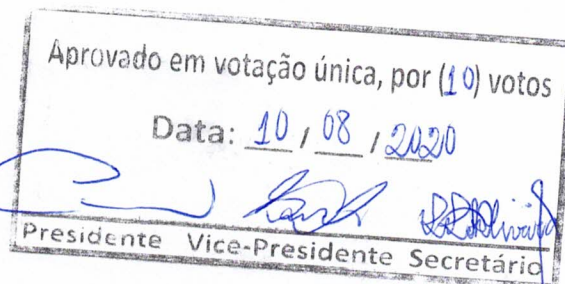 Aprovado em votação única, por (10) votos
Data: 10 / 08 / 2020
Presidente Vice-Presidente Secretário